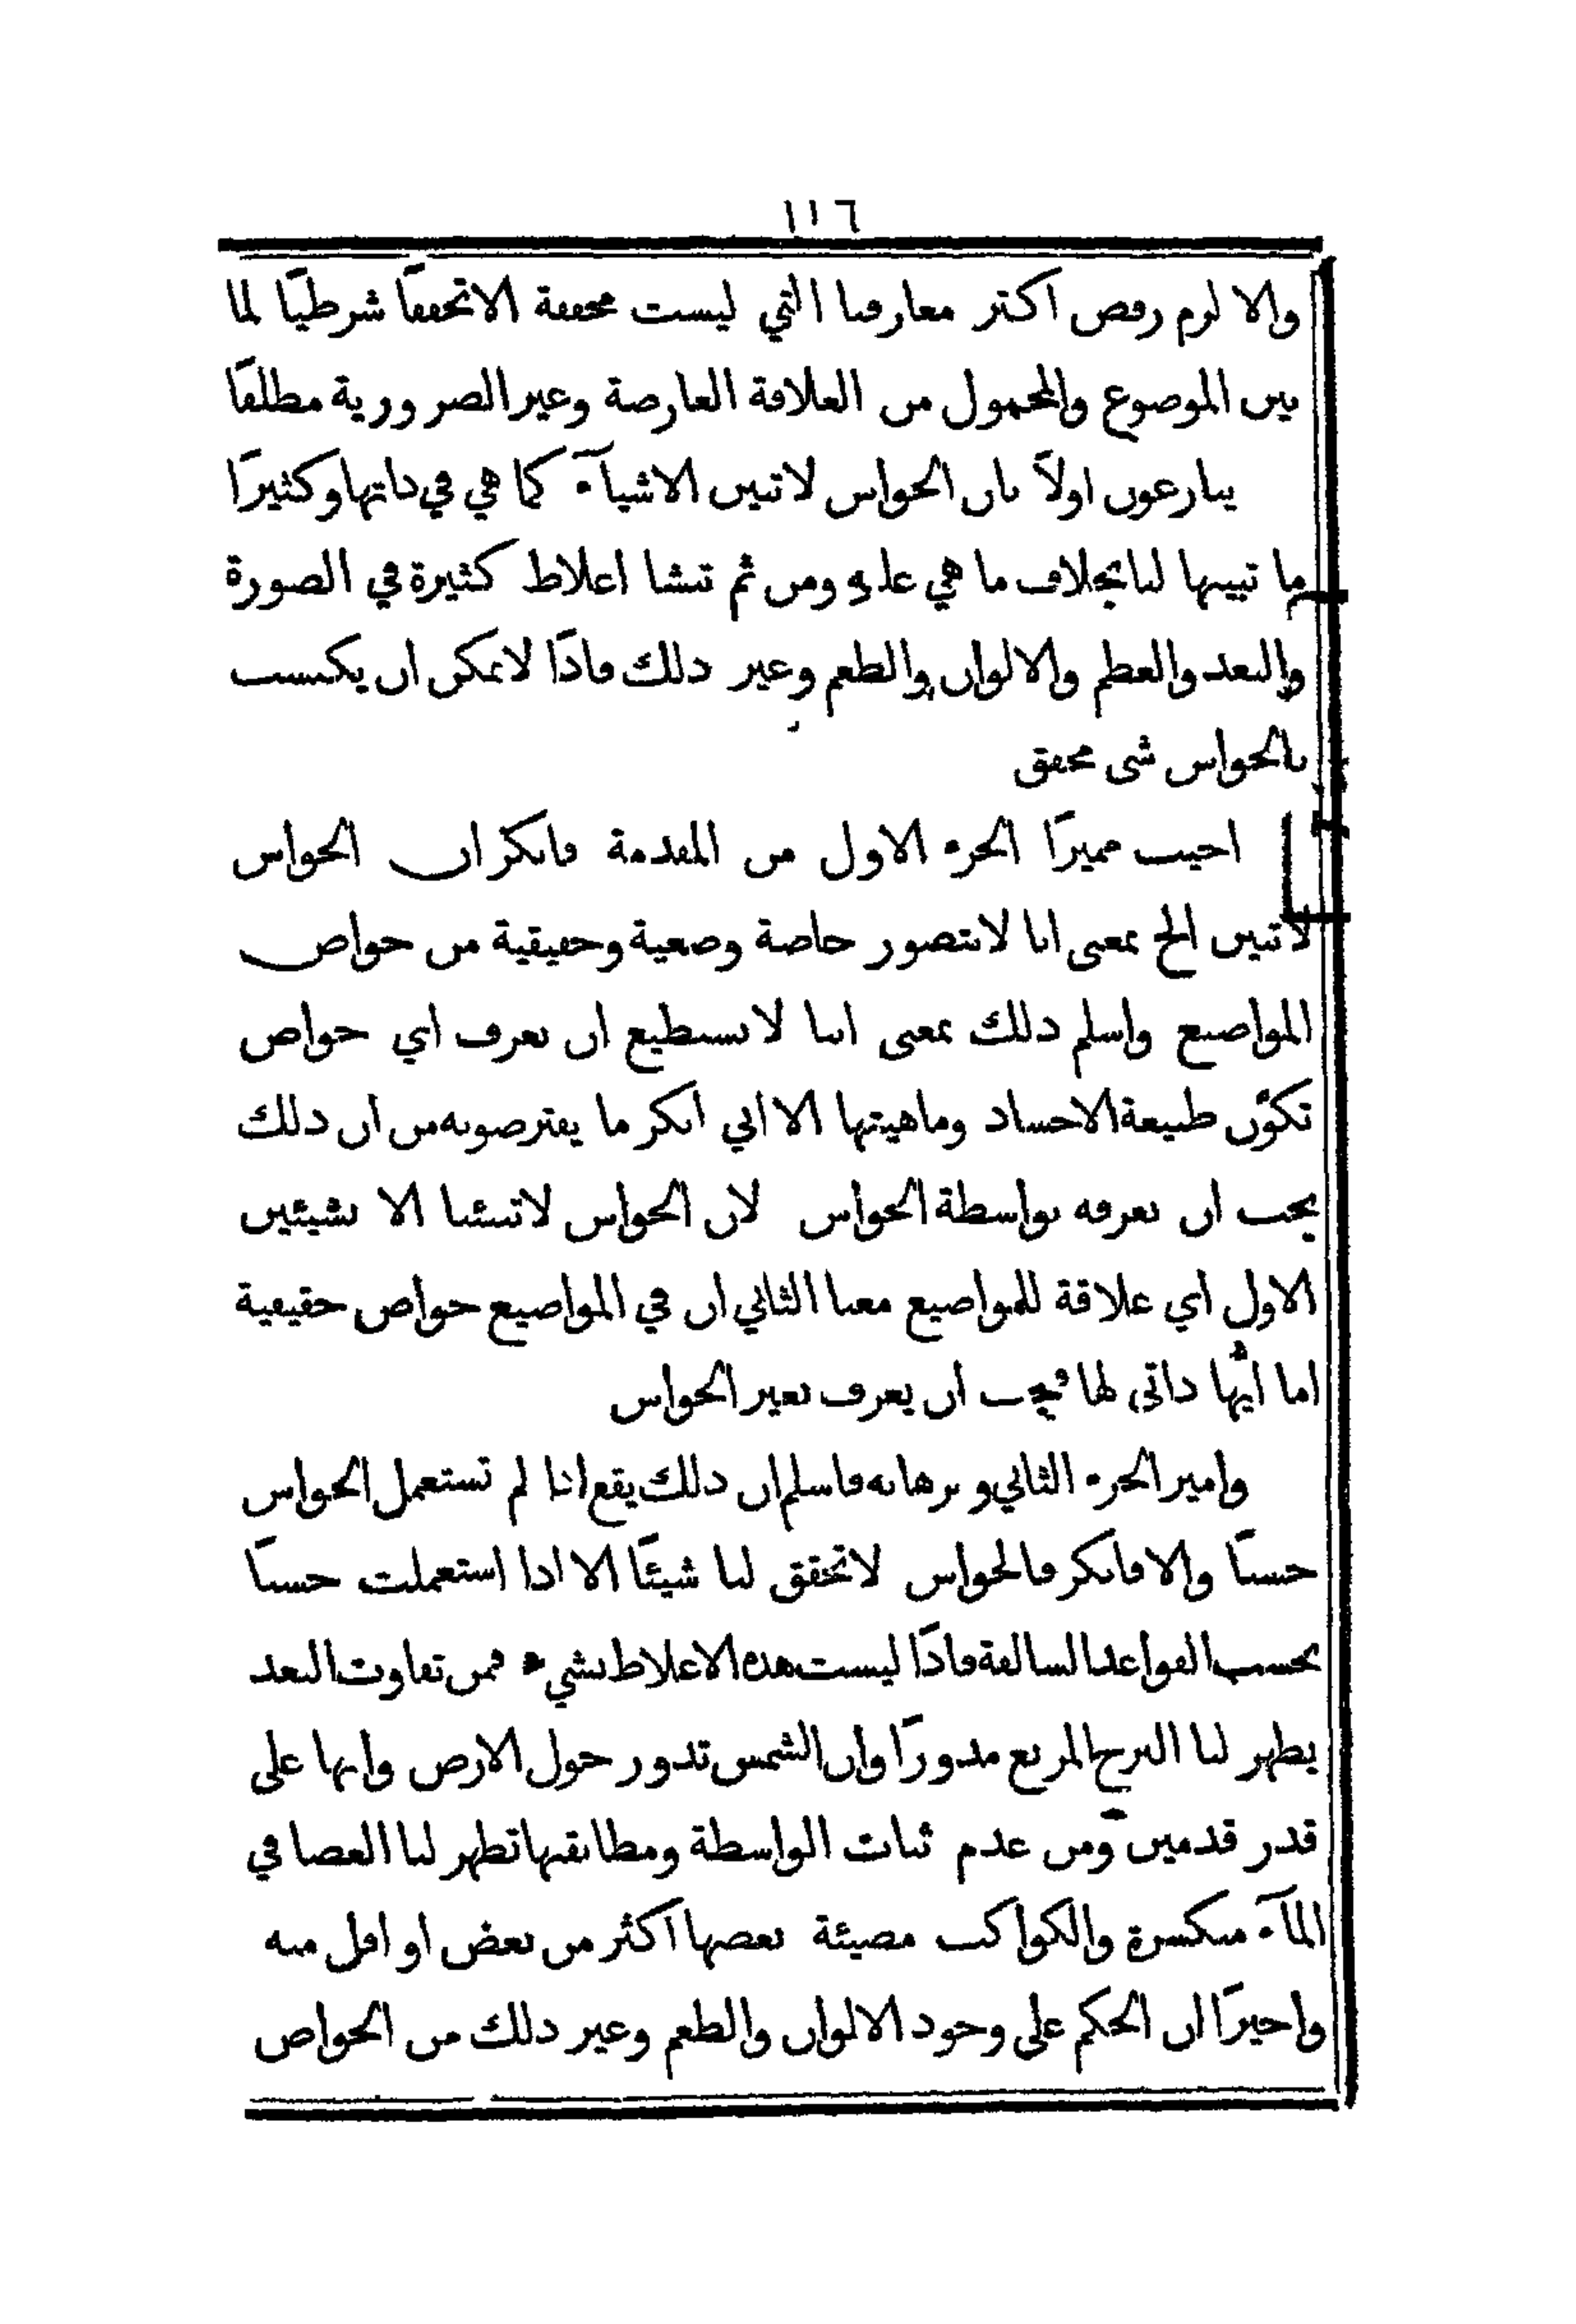 ١١٦
والا لزم رفض اكثر معارفنا التي ليست محققة الا تحققًا شرطيًا لما
بين الموضوع والمحمول من العلاقة العارضة وغير الضرورية مطلقًا
ينازعون اولاً بان الحواس لا تبين الاشيآء كما هي في ذاتها وكثيرًا
ما تبينها لنا بخلاف ما هي عليه ومن ثم تنشا اغلاط كثيرة في الصورة
والبعد والعظم والالوان والطعم وغير ذلك فاذًا لا يمكن ان يكتسب
بالحواس شي محقق
اجيب مميزًا الجزء الاول من المقدمة فانكر ان الحواس
لا تبين الخ بمعنى انا لا نتصور خاصة وضعية وحقيقية من خواص
المواضيع واسلم ذلك بمعنى اننا لا نستطيع ان نعرف اي خواص
تكوّن طبيعة الاجساد وماهيتها الا اني انكر ما يفترضونه من ان ذلك
يجب ان نعرفه بواسطة الحواس لان الحواس لا تنبئنا الا بشيئين
الاول اي علاقة للمواضيع معنا الثاني ان في المواضيع خواص حقيقية
اما أيُّها ذاتي لها فيجب ان يعرف بغير الحواس
واميز الجزء الثاني وبرهانه فاسلم ان ذلك يقع اذا لم تستعمل الحواس
حسنًا والا فانكر فالحواس لا تحقق لنا شيئًا الا اذا استعملت حسنًا
بحسب القواعد السالفة فاذًا ليست هذه الاغلاط بشيء فمن تفاوت البعد
يظهر لنا البرج المربع مدورًا وان الشمس تدور حول الارض وانها على
قدر قدمين ومن عدم ثبات الواسطة ومطابقتها تظهر لنا العصا في
المآء منكسرة والكواكب مضيئة بعضها اكثر من بعض او اقل منه
واخيرًا ان الحكم على وجود الالوان والطعم وغير ذلك من الخواص